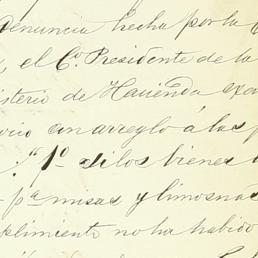 Denuncia hecha por la
, el C. Presidente de la
isterio de Hacienda
con arreglo á las
: "1º si los bienes
pª misas, y limosnas
plimiento no ha habido